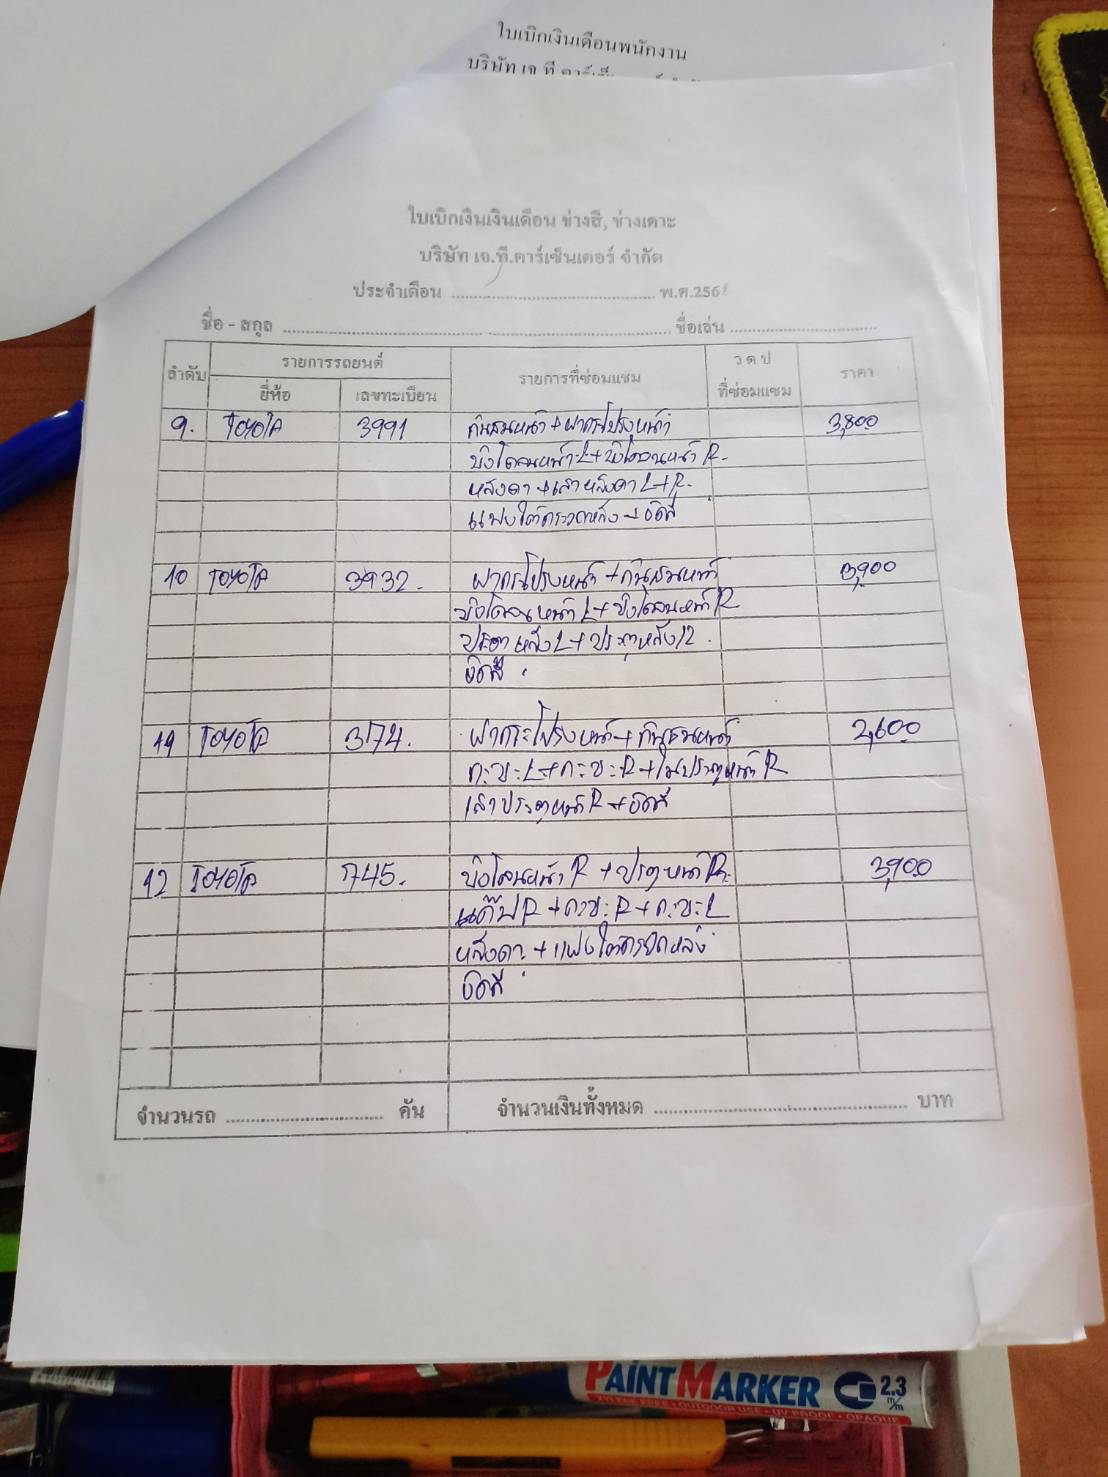 ใบเบิกเงินเดือนพนักงาน
บริษัท เจ ที
ใบเบิกเงินเงินเดือน ช่างสี, ช่างเคาะ
บริษัท เจ.ที.คาร์เซ็นเตอร์ จำกัด
ประจำเดือน .......... พ.ศ.256
ชื่อ - สกุล .......... ชื่อเล่น ..........
ลำดับ รายการรถยนต์ รายการที่ซ่อมแซม ว ด ป ที่ซ่อมแซม ราคา
ยี่ห้อ เลขทะเบียน
9. TOYOTA 3991 กันชนหน้า+ฝากระโปรงหน้า 3,800
บังโคลนหน้า L+บังโคลนหน้า R.
หลังคา+เสาหลังคา L+R.
แผงใต้กระจกหลัง+ขัดสี
10 TOYOTA 3932. ฝากระโปรงหน้า+กันชนหน้า 3,900
บังโคลนหน้า L+บังโคลนหน้า R
ประตูหลัง L+ประตูหลัง R.
ขัดสี.
11 TOYOTA 3174. ฝากระโปรงหน้า+กันชนหน้า 2,600
ก:บ:L+ก:บ:R+ ประตูหน้า R
เสาประตูหน้า R+ขัดสี
12 TOYOTA 745. บังโคลนหน้า R+ประตูหน้า R. 3,900
แค๊ป R+กะบ:R+ก:บ:L
หลังคา+แผงใต้กระจกหลัง
ขัดสี
จำนวนรถ .......... คัน จำนวนเงินทั้งหมด .......... บาท
PAINT MARKER 2.3 m/m
XYLENE FREE • OUTDOOR USE • UV PROOF • OPAQUE